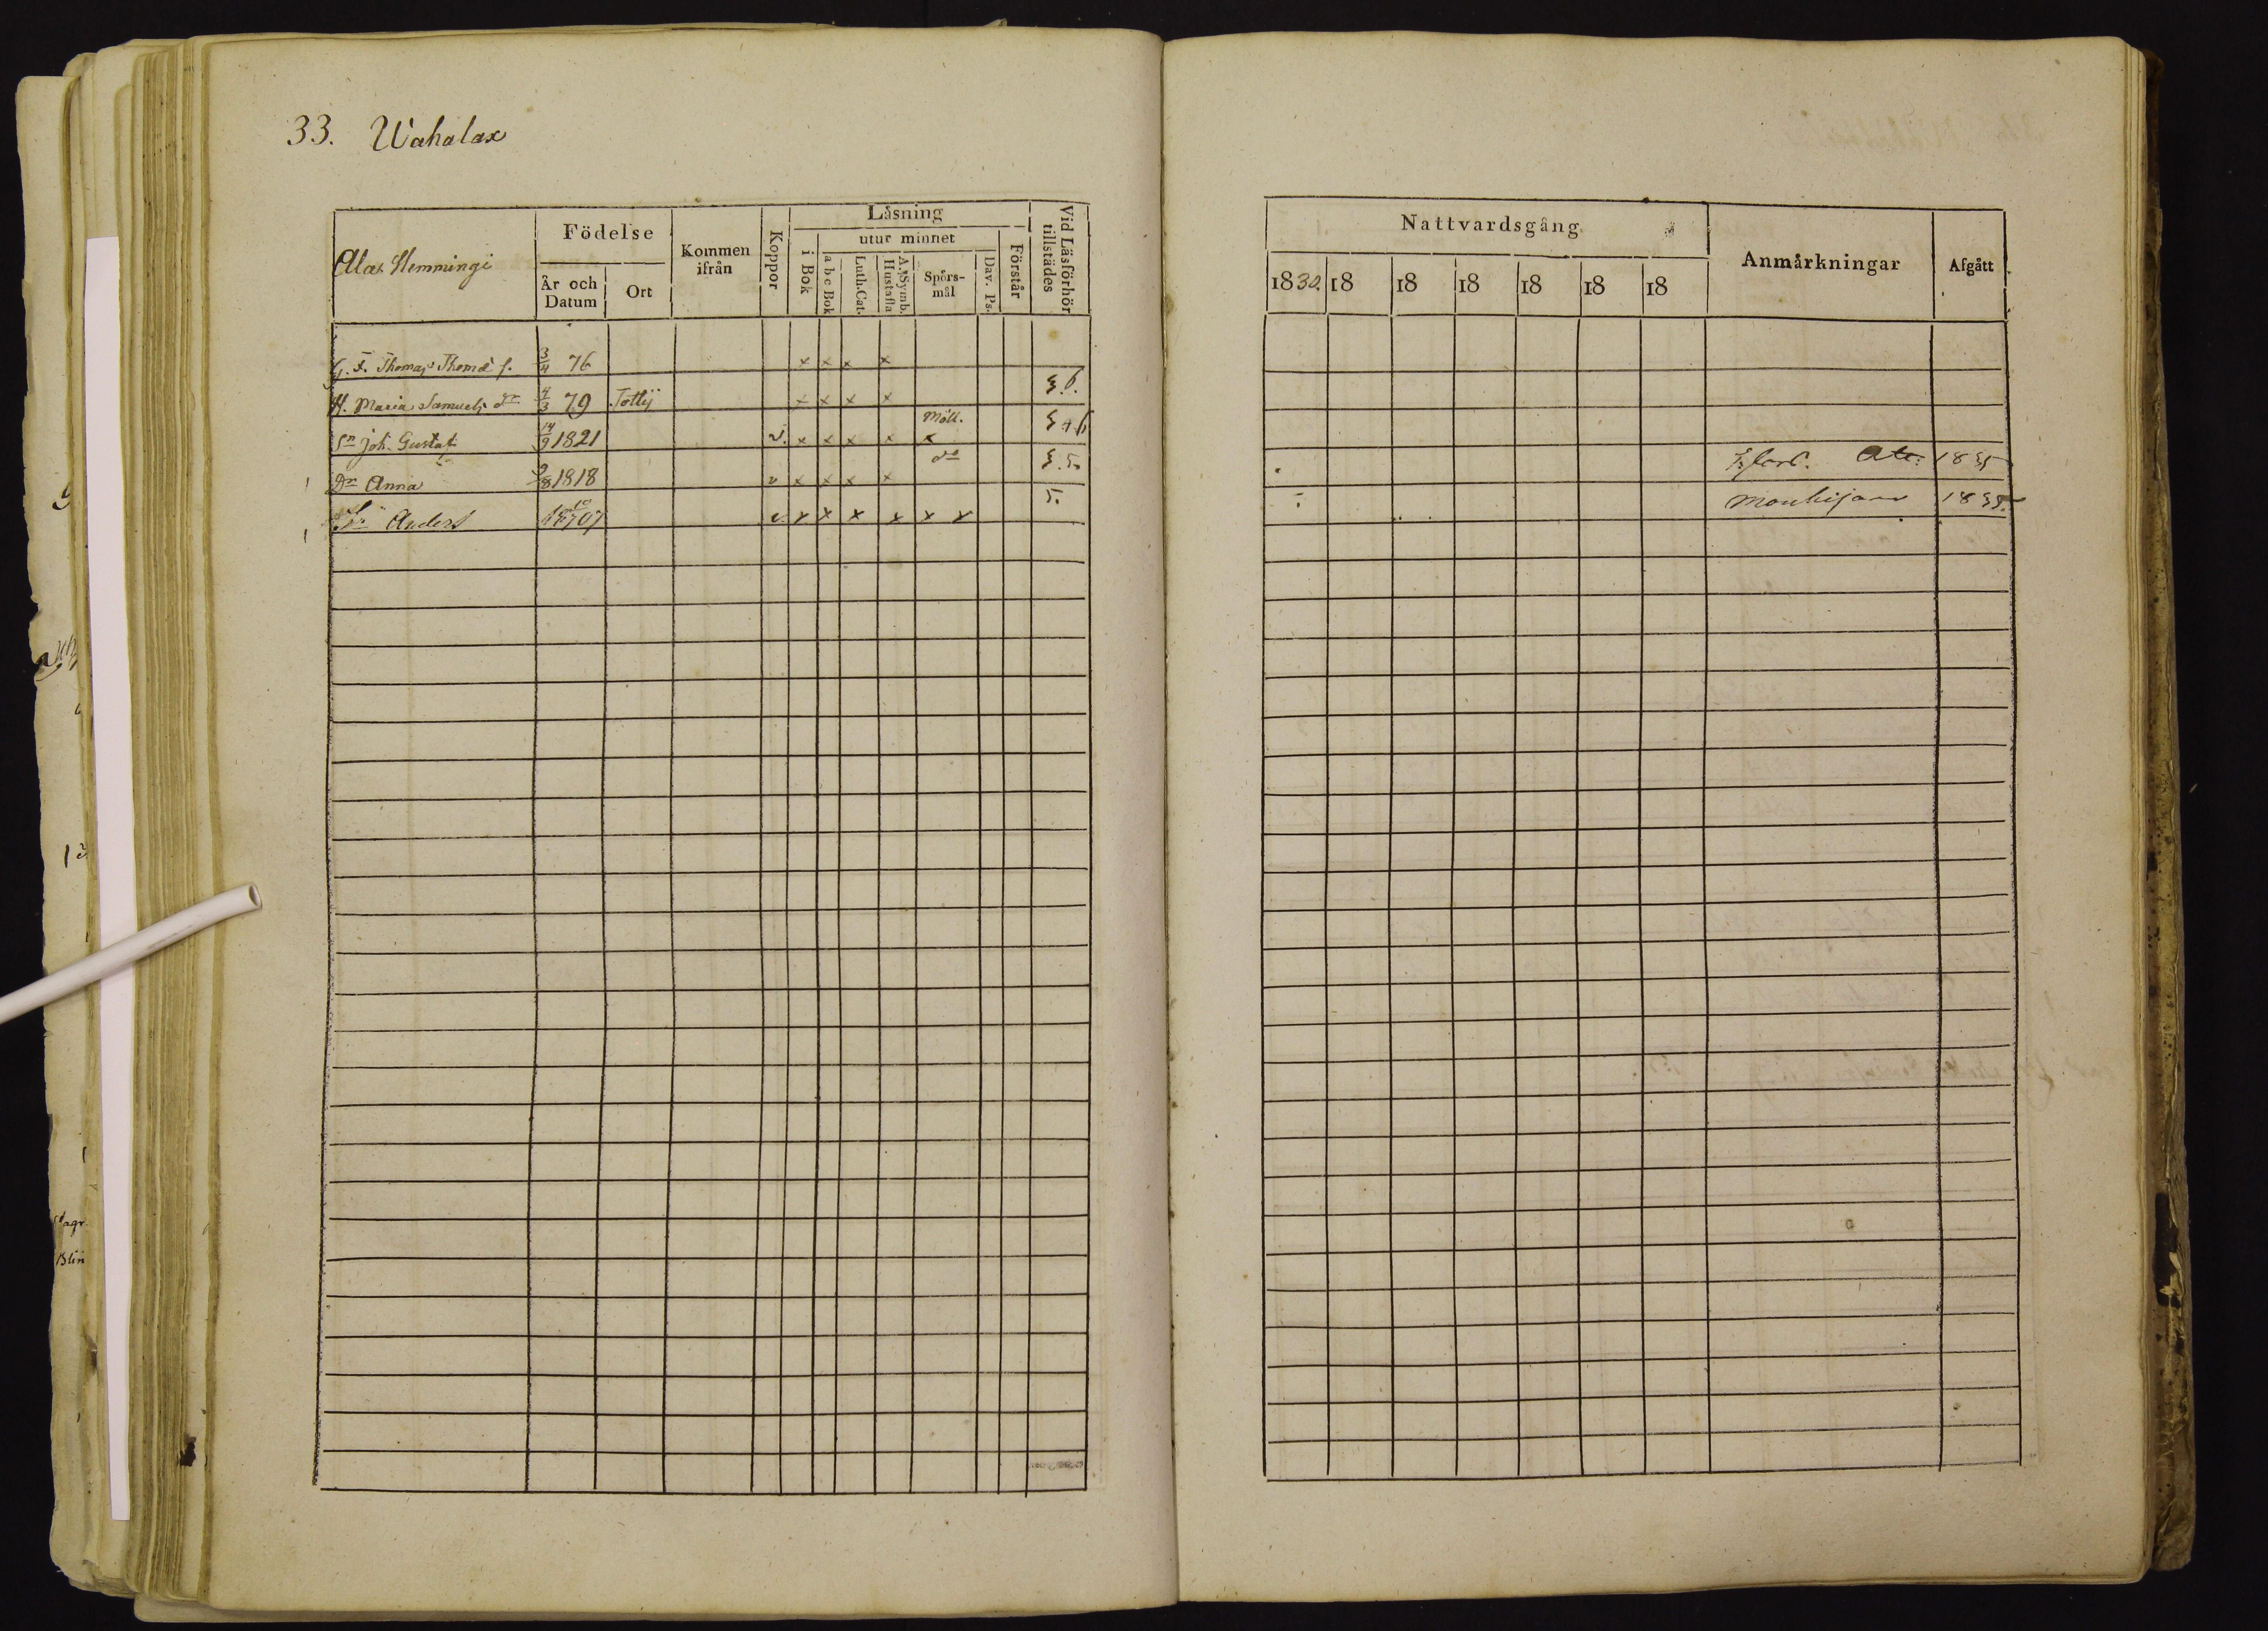 33. Wahalax
Alax Hemmingi
Födelse
År och Datum
Ort
Kommen ifrån
Koppor
Låsning
i Bok
utur minnet
a b c Bok
Luth. Cat.
A. Symb. Hustafla
Spörs-mål
Dav. Ps.
Förstår
Vid Läsförhör tillstädes
G. F. Thomas Thomæ s. 3/4 76 x x x x
H. Maria Samuels dr 4/3 79 x x x x 3.6.
Sn Joh. Gustaf 14/9 1821 v. x x x x Möll. x
Dr Anna 9/8 1818 v x x x x do 3.5.
Sn Anders 07 v. x x x x x x 5.
Nattvardsgång
1830. 18 18 18 18 18 18
Anmårkningar
Afgått
1835
1835.